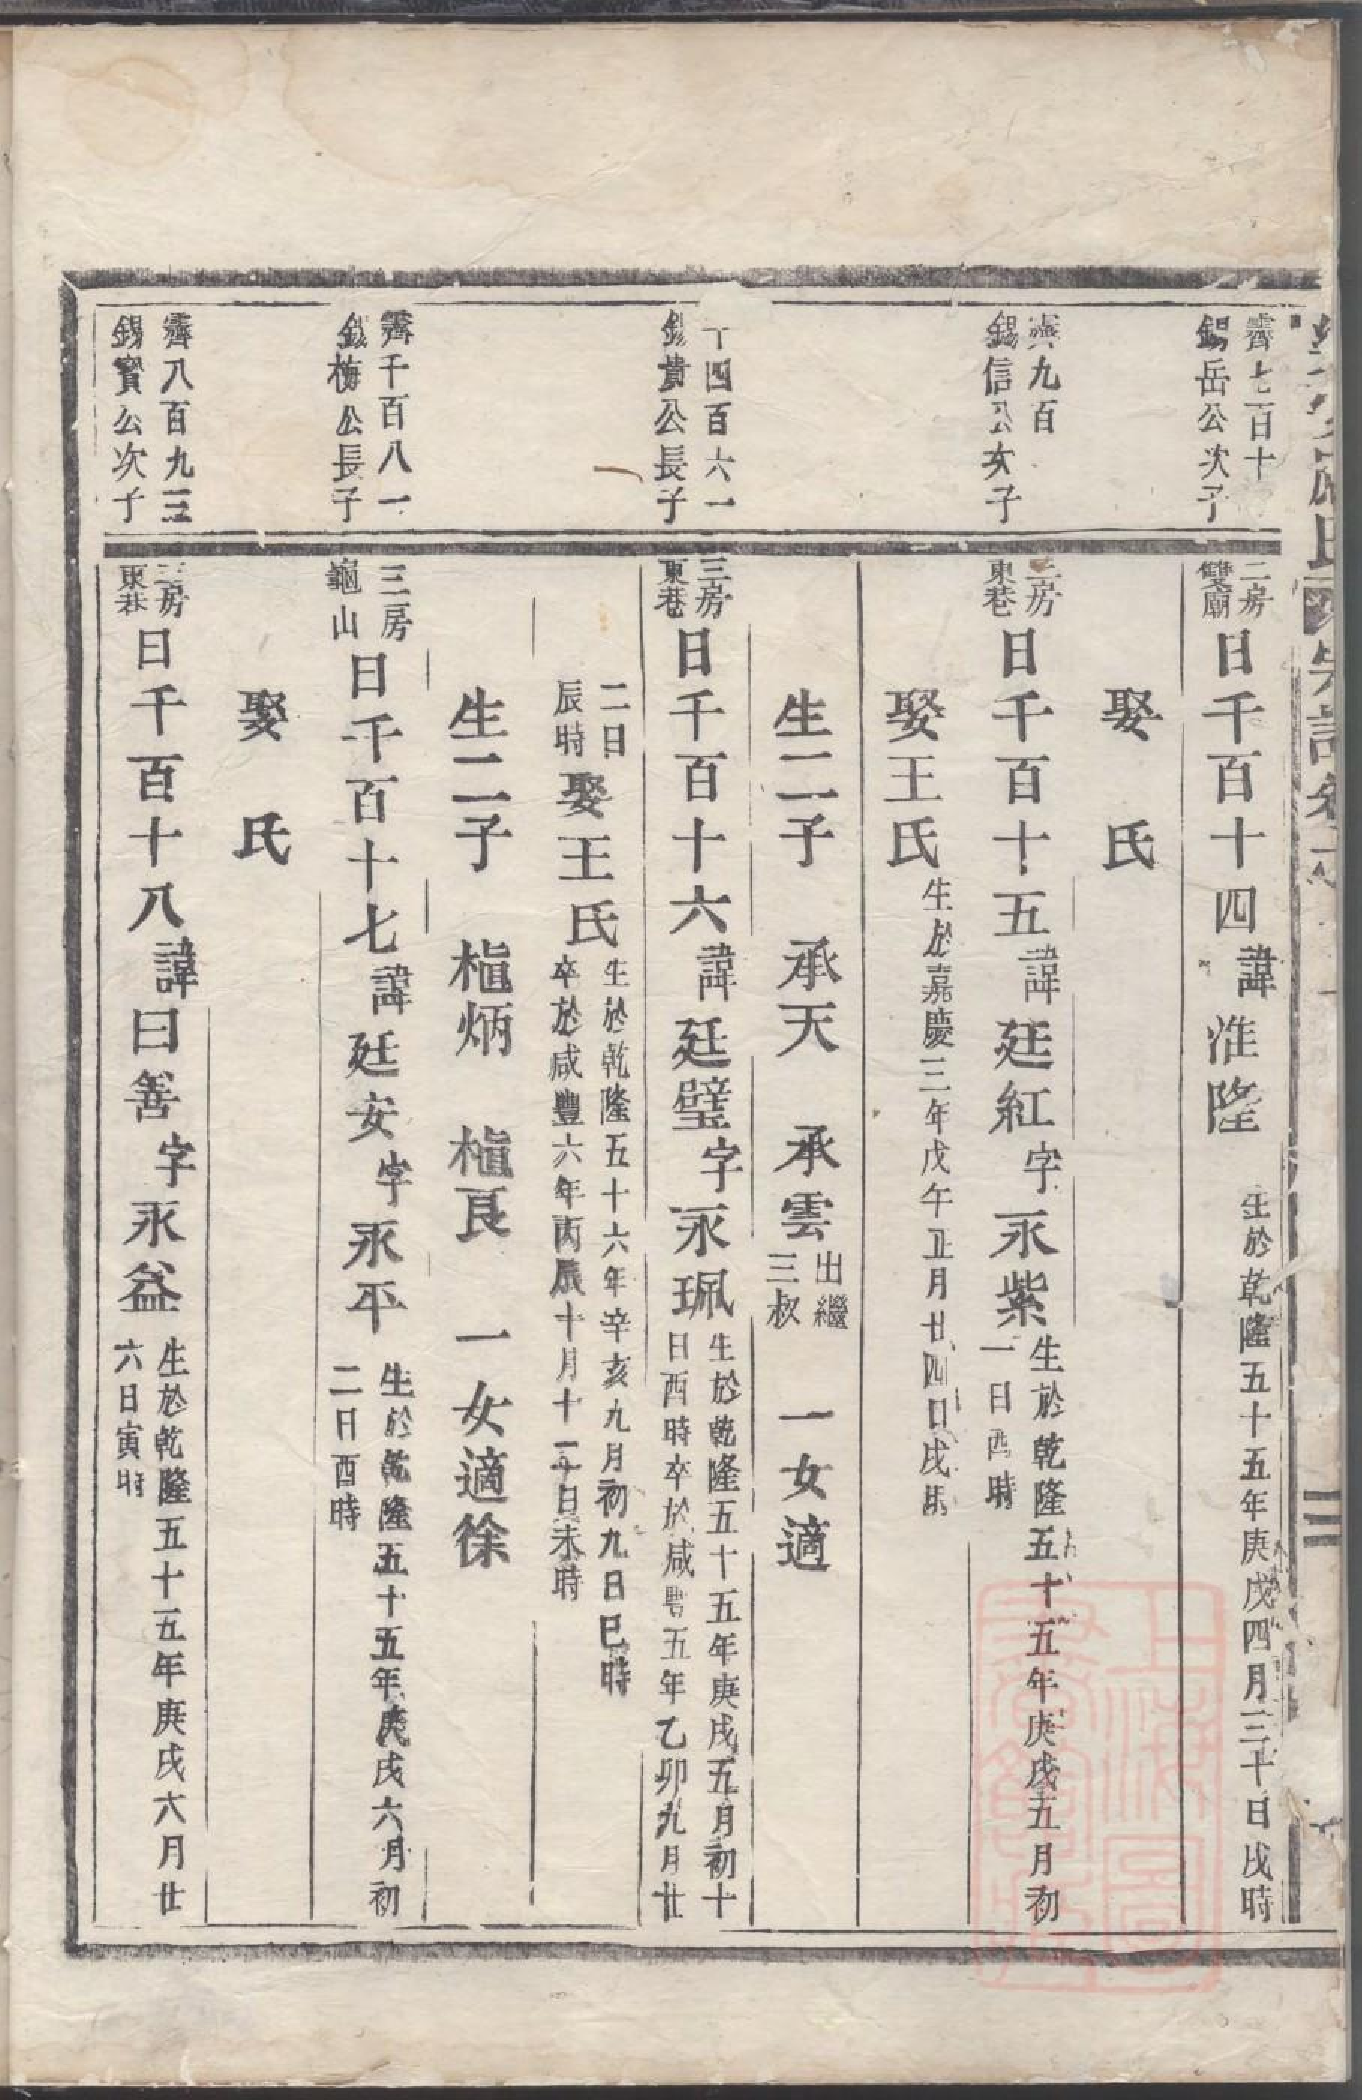 霽七百十
錫岳公次子
二房
雙廟
日千百十四
諱
淮隆
生於乾隆五十五年庚戌四月三十日戌時
娶 氏
九百
錫信公女子
三房
東巷
日千百十五
諱
廷紅
字
永紫
生於乾隆五十五年庚戌五月初
一日酉時
娶王氏
生於嘉慶三年戊午正月廿四日戌時
生二子 承天 承雲
出繼
三叔
一女適
千四百六一
錫貴公長子
三房
東巷
日千百十六
諱
廷璧
字
永珮
生於乾隆五十五年庚戌五月初十
日酉時卒於咸豐五年乙卯九月廿
二日
辰時
娶王氏
生於乾隆五十六年辛亥九月初九日巳時
卒於咸豐六年丙辰十月十二日未時
生二子 楨炳 楨良 一女適徐
霽千百八一
錫梅公長子
三房
龜山
日千百十七
諱
廷安
字
永平
生於乾隆五十五年庚戌六月初
二日酉時
娶 氏
霽八百九三
錫寳公次子
三房
東巷
日千百十八
諱
曰善
字
永益
生於乾隆五十五年庚戌六月廿
六日寅時